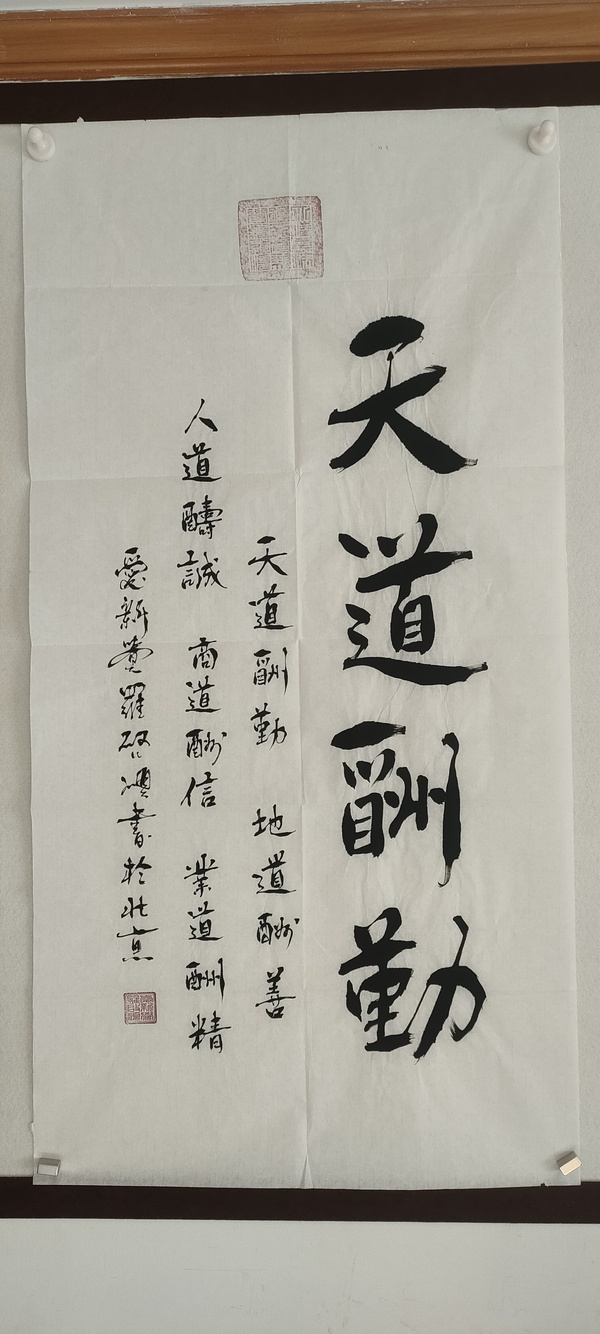 天道酬勤
天道酬勤 地道酬善
人道醻誠 商道酬信 業道酬精
愛新覺羅啓順書於北京